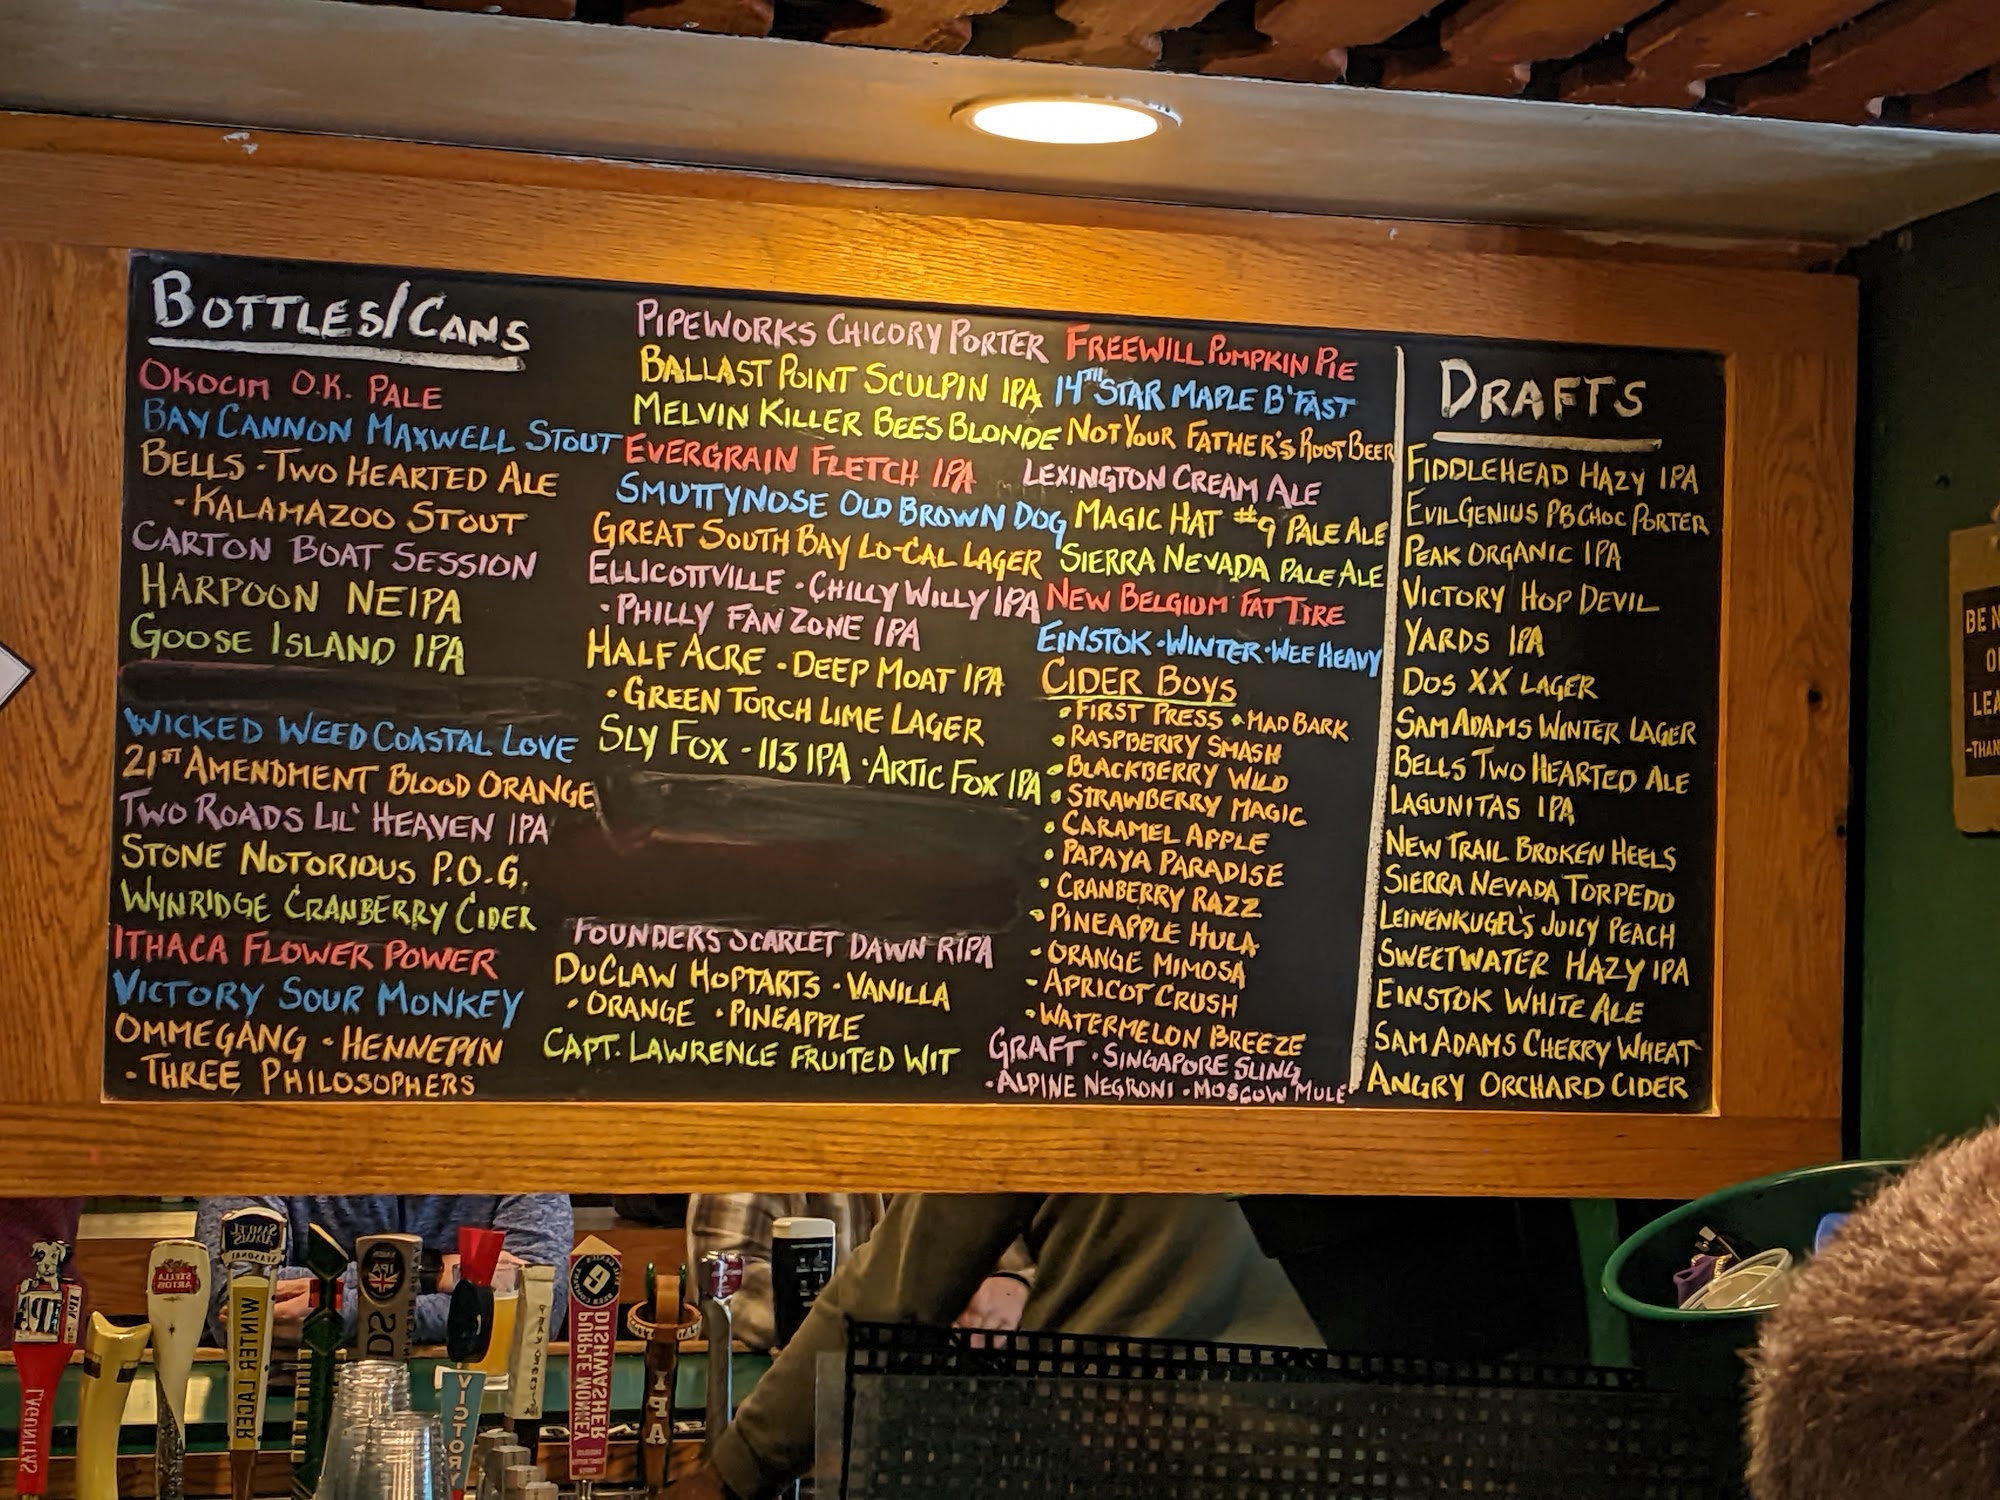 BOTTLES/CANS
OKOCIM O.K. PALE
BAY CANNON MAXWELL STOUT
BELLS · TWO HEARTED ALE
· KALAMAZOO STOUT
CARTON BOAT SESSION
HARPOON NEIPA
GOOSE ISLAND IPA
WICKED WEED COASTAL LOVE
21ST AMENDMENT BLOOD ORANGE
TWO ROADS LIL' HEAVEN IPA
STONE NOTORIOUS P.O.G.
WYNRIDGE CRANBERRY CIDER
ITHACA FLOWER POWER
VICTORY SOUR MONKEY
OMMEGANG · HENNEPIN
· THREE PHILOSOPHERS
PIPEWORKS CHICORY PORTER
BALLAST POINT SCULPIN IPA
MELVIN KILLER BEES BLONDE
EVERGRAIN FLETCH IPA
SMUTTYNOSE OLD BROWN DOG
GREAT SOUTH BAY LO-CAL LAGER
ELLICOTTVILLE · CHILLY WILLY IPA
· PHILLY FAN ZONE IPA
HALF ACRE · DEEP MOAT IPA
· GREEN TORCH LIME LAGER
SLY FOX - 113 IPA · ARTIC FOX IPA
FOUNDERS SCARLET DAWN RIPA
DUCLAW HOPTARTS · VANILLA
· ORANGE · PINEAPPLE
CAPT. LAWRENCE FRUITED WIT
FREEWILL PUMPKIN PIE
14TH STAR MAPLE B'FAST
NOT YOUR FATHER'S ROOT BEER
LEXINGTON CREAM ALE
MAGIC HAT #9 PALE ALE
SIERRA NEVADA PALE ALE
NEW BELGIUM FAT TIRE
EINSTOK · WINTER · WEE HEAVY
CIDER BOYS
· FIRST PRESS · MAD BARK
· RASPBERRY SMASH
· BLACKBERRY WILD
· STRAWBERRY MAGIC
· CARAMEL APPLE
· PAPAYA PARADISE
· CRANBERRY RAZZ
· PINEAPPLE HULA
· ORANGE MIMOSA
· APRICOT CRUSH
· WATERMELON BREEZE
GRAFT · SINGAPORE SLING
· ALPINE NEGRONI · MOSCOW MULE
DRAFTS
FIDDLEHEAD HAZY IPA
EVIL GENIUS PB CHOC PORTER
PEAK ORGANIC IPA
VICTORY HOP DEVIL
YARDS IPA
DOS XX LAGER
SAM ADAMS WINTER LAGER
BELLS TWO HEARTED ALE
LAGUNITAS IPA
NEW TRAIL BROKEN HEELS
SIERRA NEVADA TORPEDO
LEINENKUGEL'S JUICY PEACH
SWEETWATER HAZY IPA
EINSTOK WHITE ALE
SAM ADAMS CHERRY WHEAT
ANGRY ORCHARD CIDER
BE N
LEA
-THAN
IPA
LAGUNITAS
STELLA
ARTOIS
SAMUEL
ADAMS
SEASONAL
WINTER LAGER
IPA
VICTORY
DISHWASHER
PURPLE MONKEY
IPA